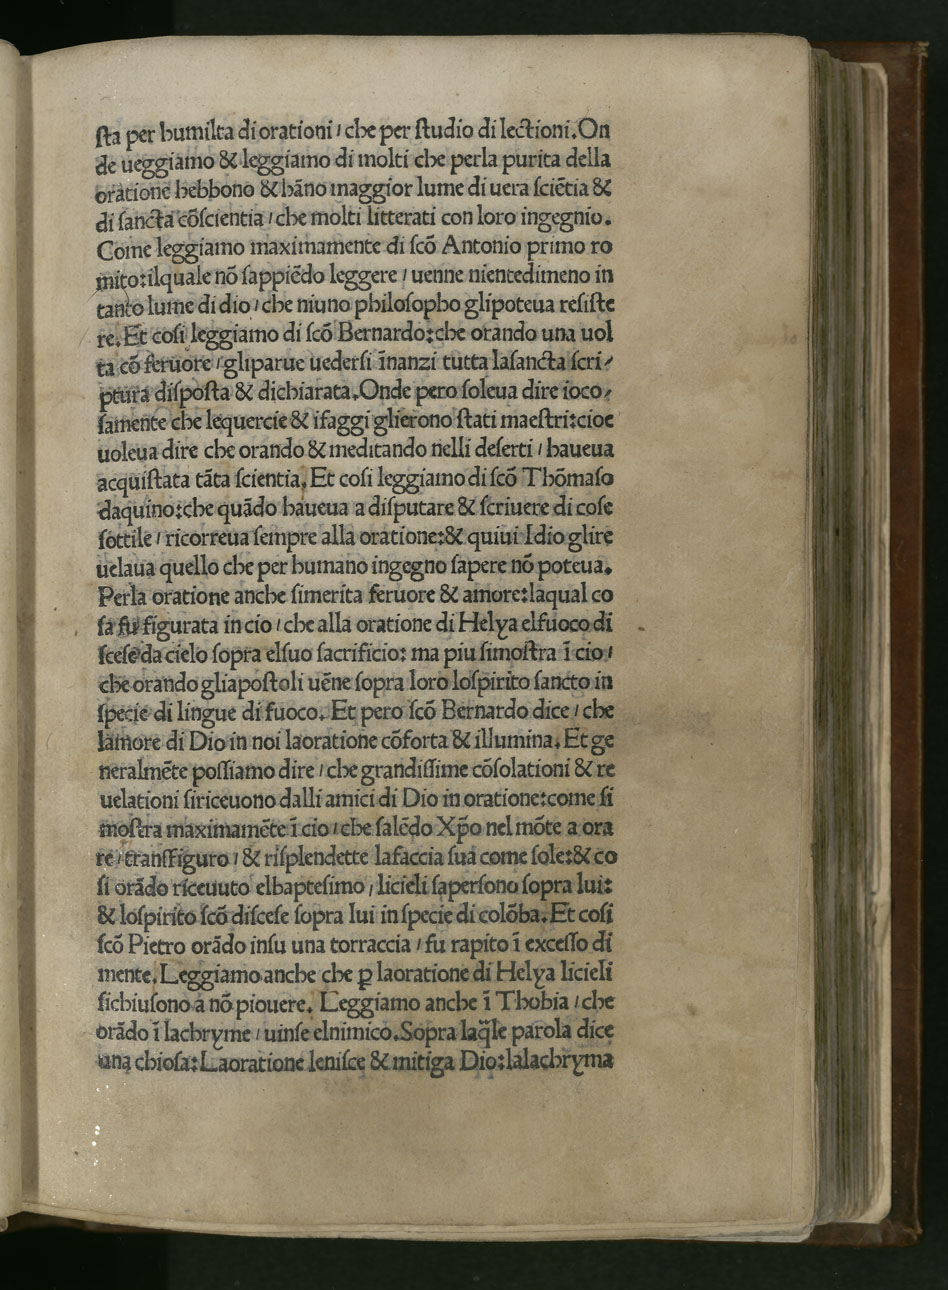 ſta per humilta di orationi / che per ſtudio di lectioni. On
de ueggiamo & leggiamo di molti che perla purita della
oratione hebbono & hāno maggior lume di uera ſciētia &
di ſancta cōſcientia / che molti litterati con loro ingegnio.
Come leggiamo maximamente di ſcō Antonio primo ro
mito: ilquale nō ſappiēdo leggere / uenne nientedimeno in
tanto lume di dio / che niuno philoſopho glipoteua reſiſte
re. Et coſi leggiamo di ſcō Bernardo: che orando una uol
ta cō feruore / gliparue uederſi īnanzi tutta laſancta ſcri⸗
ptura diſpoſta & dichiarata. Onde pero ſoleua dire ioco⸗
ſamente che lequercie & ifaggi glierono ſtati maeſtri: cioe
uoleua dire che orando & meditando nelli deſerti / haueua
acquiſtata tāta ſcientia. Et coſi leggiamo di ſcō Thōmaſo
daquino: che quādo haueua a diſputare & ſcriuere di coſe
ſottile / ricorreua ſempre alla oratione: & quiui Idio glire
uelaua quello che per humano ingegno ſapere nō poteua.
Perla oratione anche ſimerita feruore & amore: laqual co
ſa fu figurata in cio / che alla oratione di Helya elfuoco di
ſceſe da cielo ſopra elſuo ſacrificio: ma piu ſimoſtra ī cio /
che orando gliapoſtoli uēne ſopra loro loſpirito ſancto in
ſpecie di lingue di fuoco. Et pero ſcō Bernardo dice / che
lamore di Dio in noi laoratione cōforta & illumina. Et ge
neralmēte poſſiamo dire / che grandiſſime cōſolationi & re
uelationi ſiriceuono dalli amici di Dio in oratione: come ſi
moſtra maximamēte ī cio / che ſalēdo Xp̄o nel mōte a ora
re / tranſfiguro / & riſplendette lafaccia ſua come ſole: & co
ſi orādo riceuuto elbapteſimo / licieli ſaperſono ſopra lui:
& loſpirito ſcō diſceſe ſopra lui in ſpecie di colōba. Et coſi
ſcō Pietro orādo inſu una torraccia / fu rapito ī exceſſo di
mente. Leggiamo anche che ꝑ laoratione di Helya licieli
ſichiuſono a nō piouere. Leggiamo anche ī Thobia / che
orādo ī lachryme / uinſe elnimico. Sopra laq̄le parola dice
una chioſa: Laoratione leniſce & mitiga Dio: lalachryma